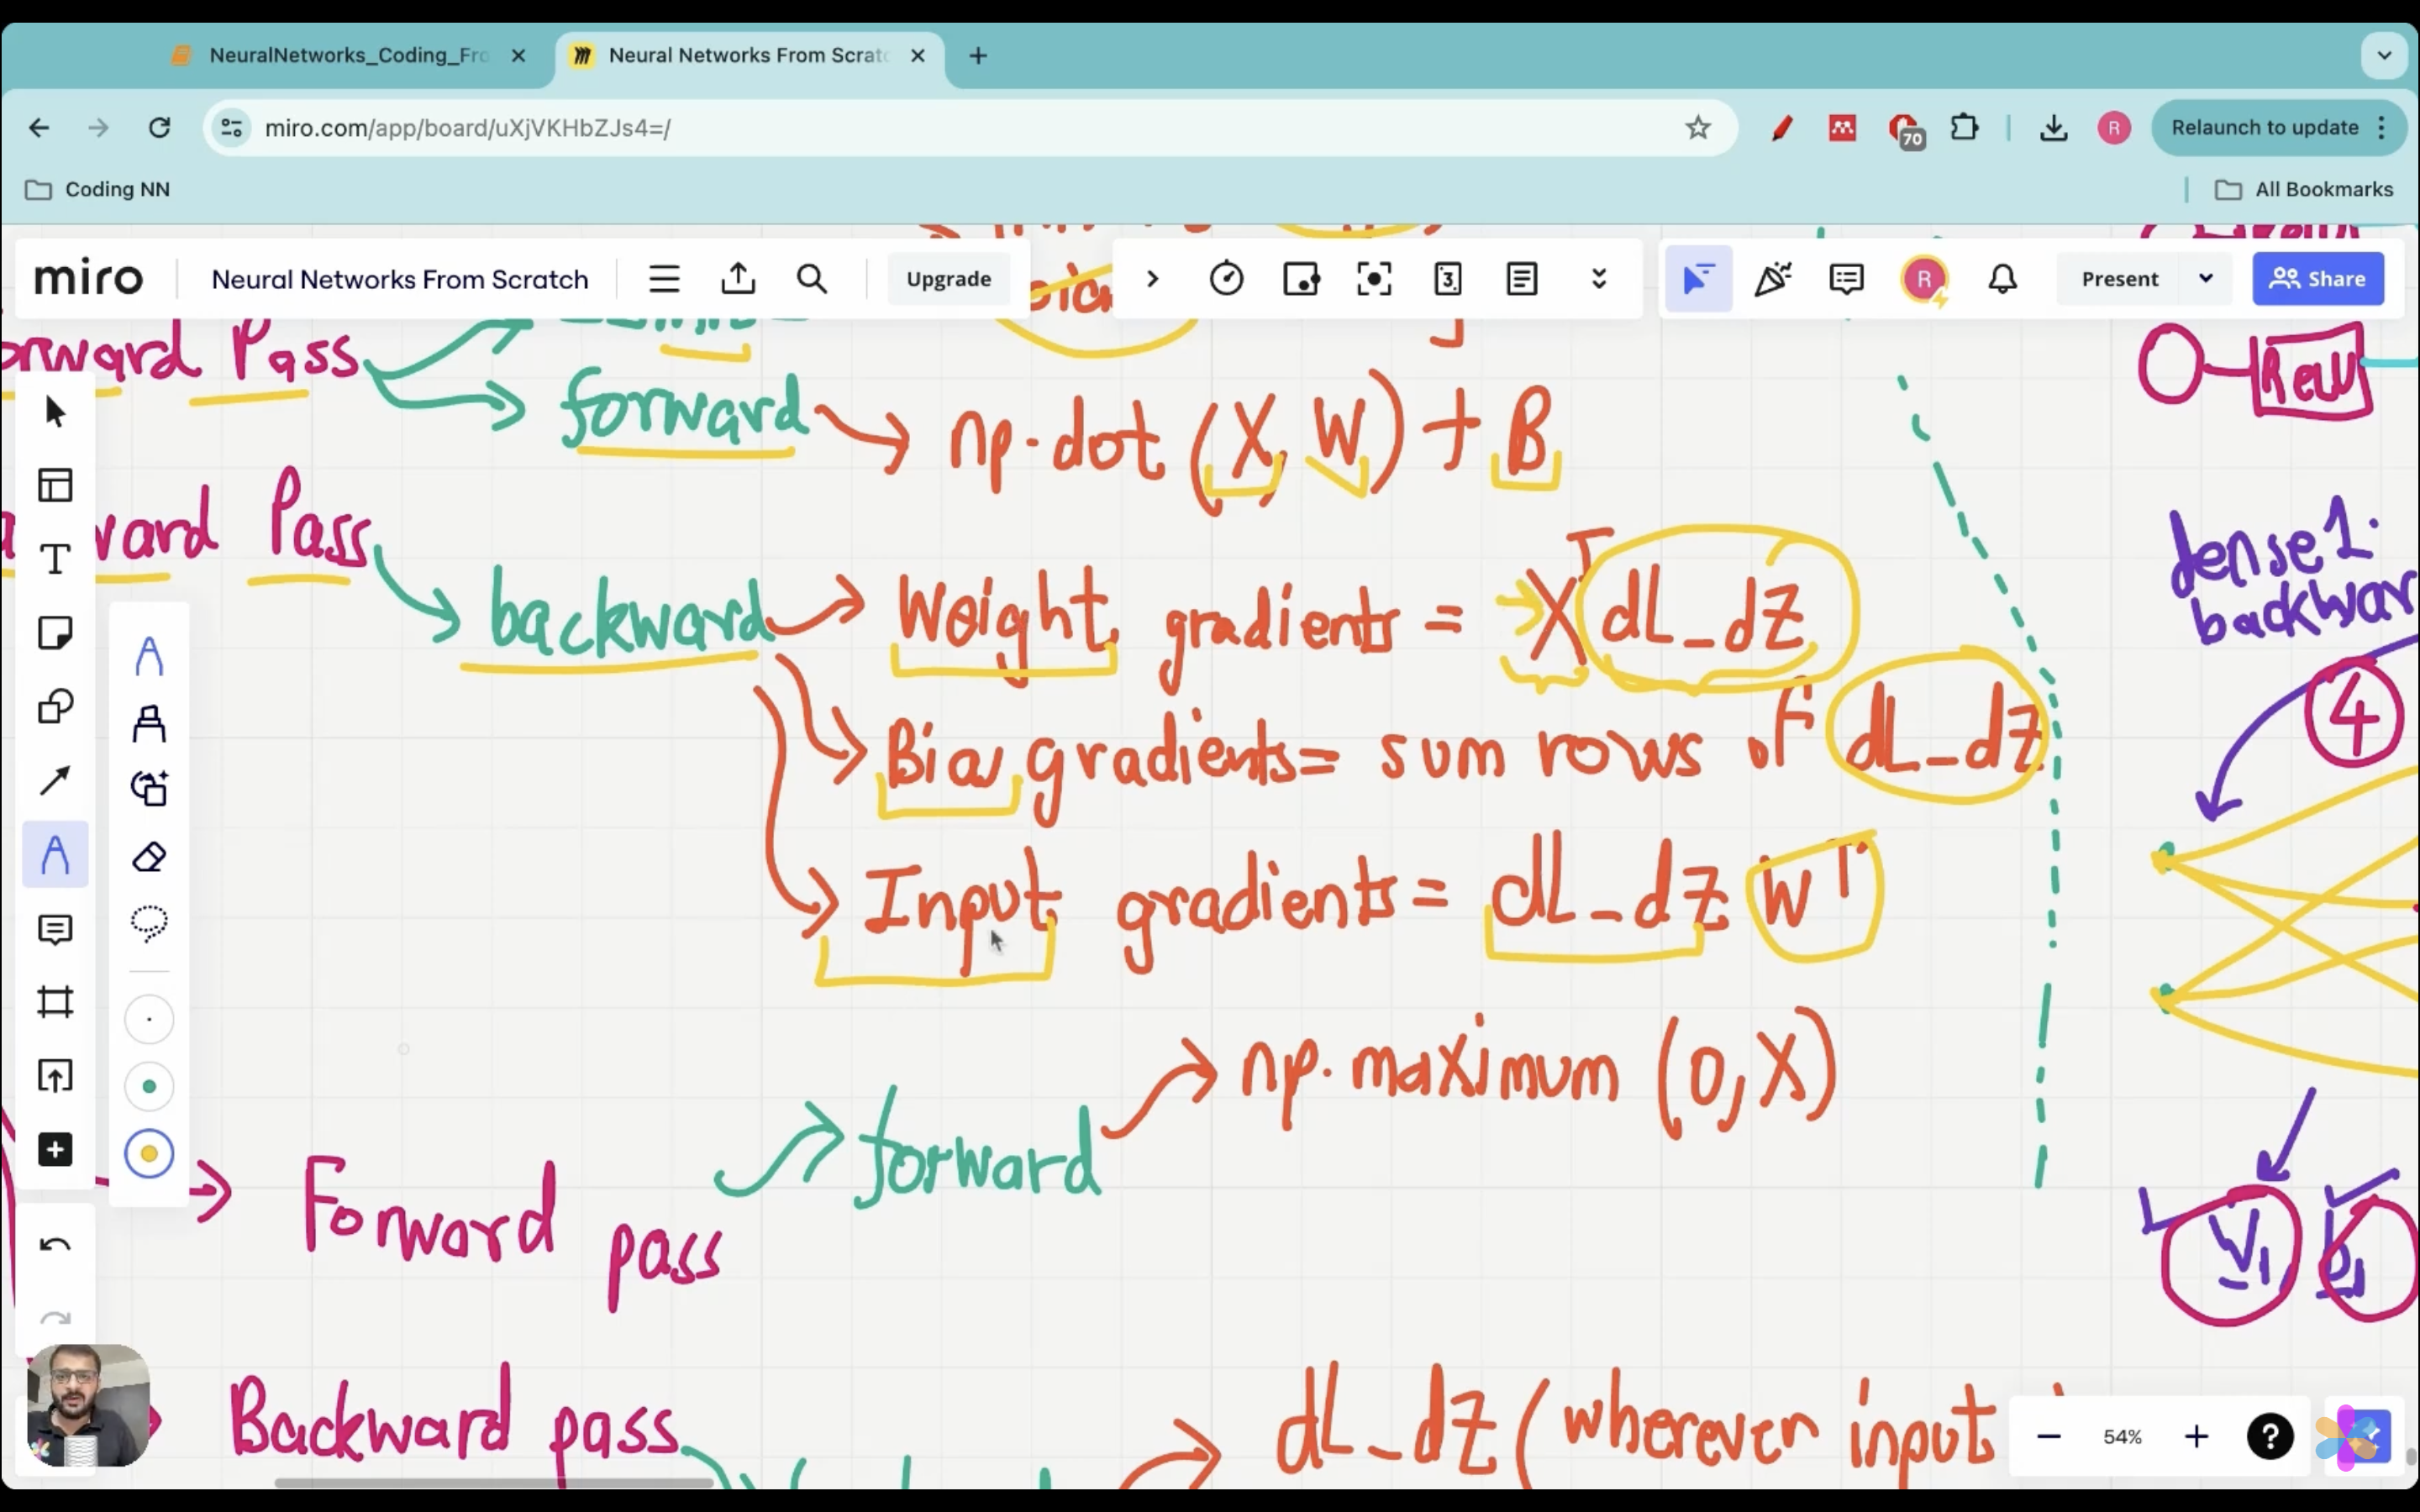 NeuralNetworks_Coding_Fro
Neural Networks From Scratc
miro.com/app/board/uXjVKHbZJs4=/
70
R
Relaunch to update
Coding NN
All Bookmarks
miro
Neural Networks From Scratch
Upgrade
3
R
Present
Share
orward Pass
forward
np.dot (X, W) + B
ward Pass
backward
Weight gradients = X^T dL_dZ
Bias gradients = sum rows of dL_dZ
Input gradients = dL_dZ W^T
np.maximum (0, X)
forward
Forward pass
Backward pass
dL_dZ (wherever input
ReLU
dense1.
backwar
4
W1 b1
T
54%
?